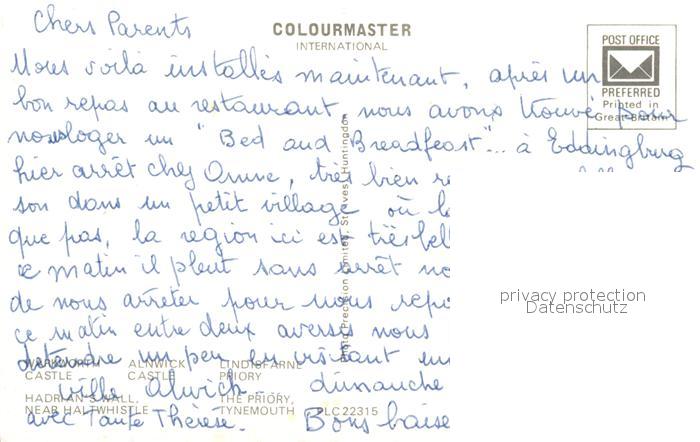 Chers Parents
COLOURMASTER
INTERNATIONAL
POST OFFICE
PREFERRED
Printed in
Great Britain
Nous voilà installés maintenant, après un
bon repas au restaurant, nous avons trouvé pour
nous loger un "Bed and Breadfeast"... à Eddingburg
hier arrêt chez Anne, très bien re
son dans un petit village où le
que pas, la region ici est très bel
ce matin il pleut sans arrêt no
de nous arrêter pour nous repo
ce matin entre deux averses nous
détendre un peu en visitant un
ville Alwich. dimanche
avec Tante Thérèse. Bons baise
Photo Precision Limited, St. Ives, Huntingdon
WARKWORTH CASTLE
ALNWICK CASTLE
LINDISFARNE PRIORY
HADRIAN'S WALL, NEAR HALTWHISTLE
THE PRIORY, TYNEMOUTH
PLC22315
privacy protection
Datenschutz